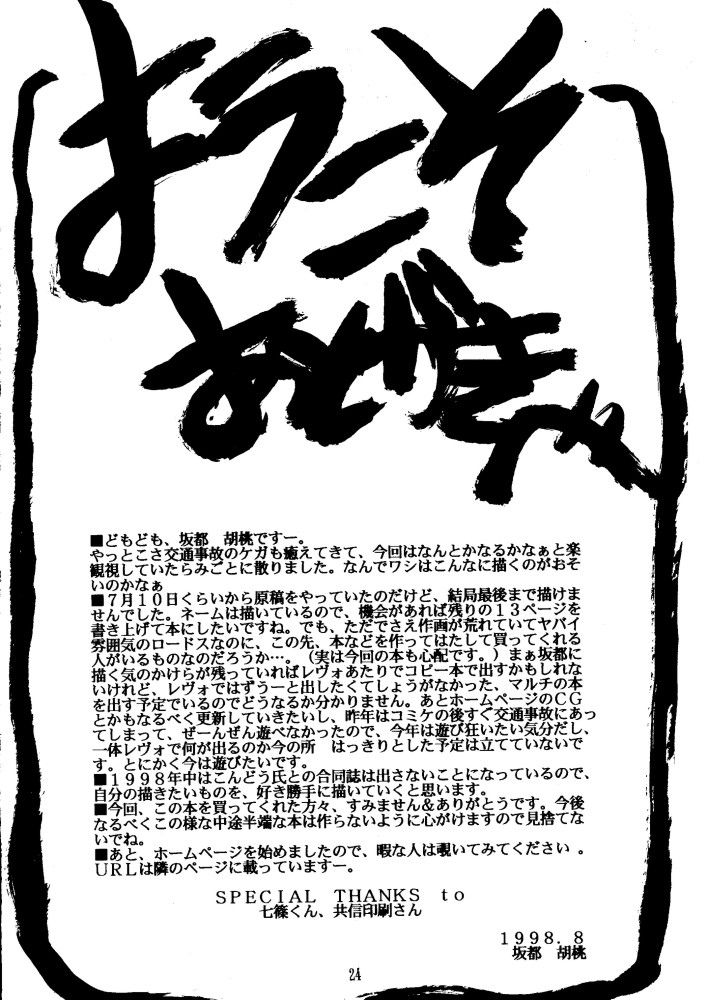 ようこそ
あとがきじゃ
■どもども、坂都　胡桃ですー。
やっとこさ交通事故のケガも癒えてきて、今回はなんとかなるかなぁと楽
観視していたらみごとに散りました。なんでワシはこんなに描くのがおそ
いのかなぁ
■７月１０日くらいから原稿をやっていたのだけど、結局最後まで描けま
せんでした。ネームは描いているので、機会があれば残りの１３ページを
書き上げて本にしたいですね。でも、ただでさえ作画が荒れていてヤバイ
雰囲気のロードスなのに、この先、本などを作ってはたして買ってくれる
人がいるものなのだろうか…。（実は今回の本も心配です。）まぁ坂都に
描く気のかけらが残っていればレヴォあたりでコピー本で出すかもしれな
いけれど、レヴォではずうーと出したくてしょうがなかった、マルチの本
を出す予定でいるのでどうなるか分かりません。あとホームページのＣＧ
とかもなるべく更新していきたいし、昨年はコミケの後すぐ交通事故にあっ
てしまって、ぜーんぜん遊べなかったので、今年は遊び狂いたい気分だし、
一体レヴォで何が出るのか今の所　はっきりとした予定は立てていないで
す。とにかく今は遊びたいです。
■１９９８年中はこんどう氏との合同誌は出さないことになっているので、
自分の描きたいものを、好き勝手に描いていくと思います。
■今回、この本を買ってくれた方々、すみません＆ありがとうです。今後
なるべくこの様な中途半端な本は作らないように心がけますので見捨てな
いでね。
■あと、ホームページを始めましたので、暇な人は覗いてみてください 。
ＵＲＬは隣のページに載っていますー。
ＳＰＥＣＩＡＬ　ＴＨＡＮＫＳ　ｔｏ
七篠くん、共信印刷さん
１９９８．８
坂都　胡桃
24